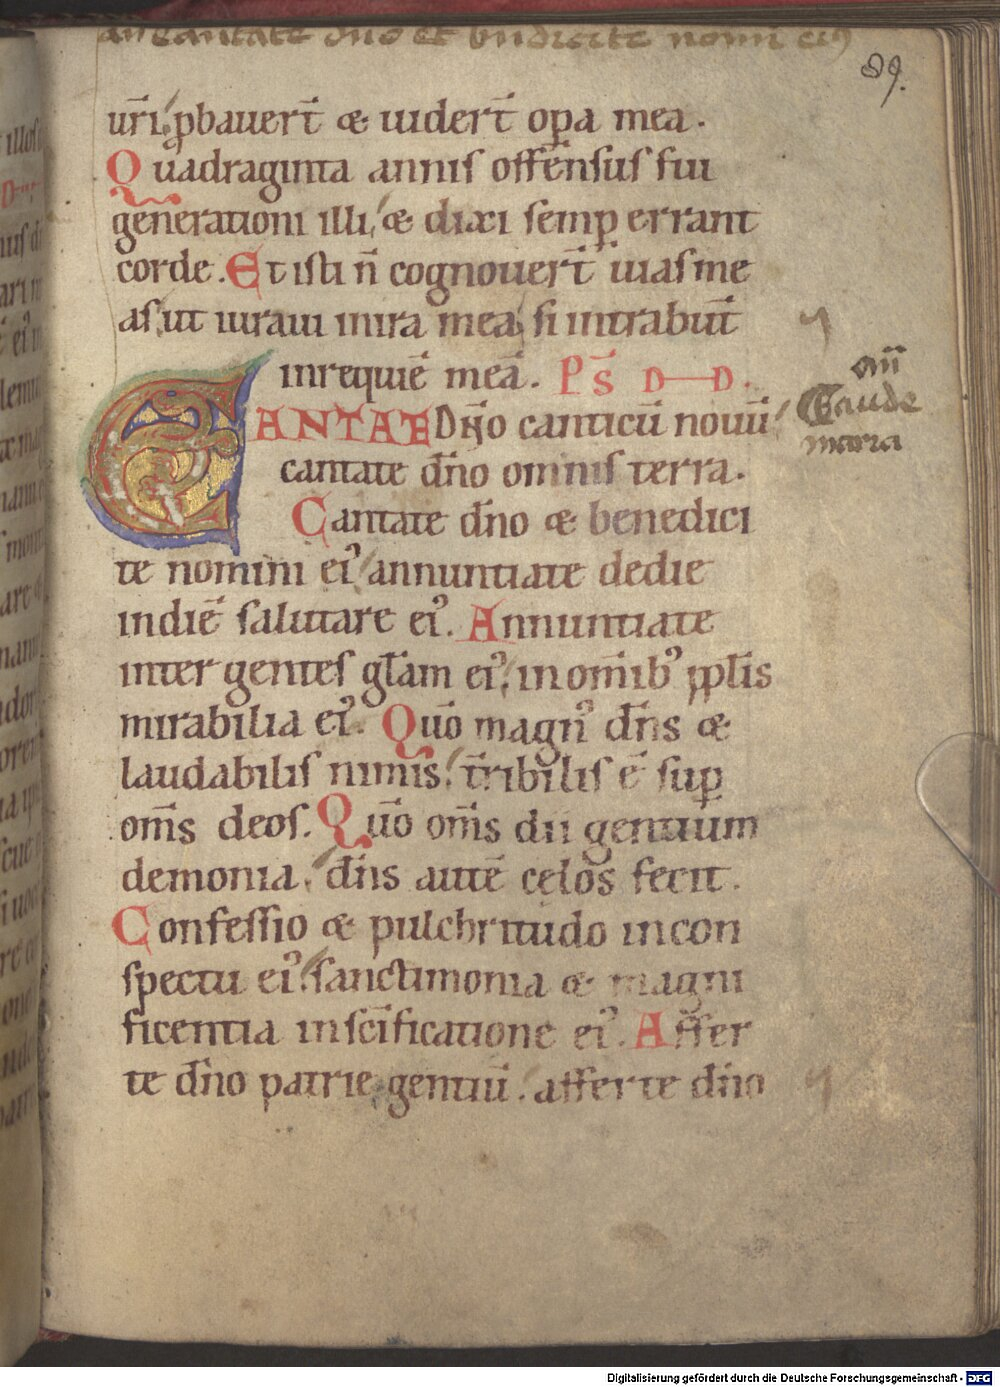 an Cantate dno et bndicite nomi eiꝰ
89.
ur̄i, ꝓbauer̄t & uider̄t oꝑa mea.
Quadraginta annis offensus fui
generationi illi, & dixi semꝑ errant
corde. Et isti n̄ cognouer̄t uias me
as, ut iuraui in ira mea, si intrabūt
in requiē meā. Ps̄ D—D.
CANTATE Dn̄o canticū nouū
cantate dn̄o omnis terra.
Cantate dn̄o & benedici
te nomini eiꝰ, annuntiate dedie
indiē salutare eiꝰ. Annuntiate
inter gentes gl̄am eiꝰ, in om̄ibꝰ ppl̄is
mirabilia eiꝰ. Quō magnꝰ dn̄s &
laudabilis nimis, t̄ribilis ē suꝑ
om̄s deos. Quō om̄s dii gentium
demonia, dn̄s autē cęlos fecit.
Confessio & pulchritudo in con
spectu eiꝰ, sanctimonia & magni
ficentia in sc̄ificatione eiꝰ. Affer
te dn̄o patrie gentiū, afferte dn̄o
an̄
Gaude
maria
Digitalisierung gefördert durch die Deutsche Forschungsgemeinschaft - DFG